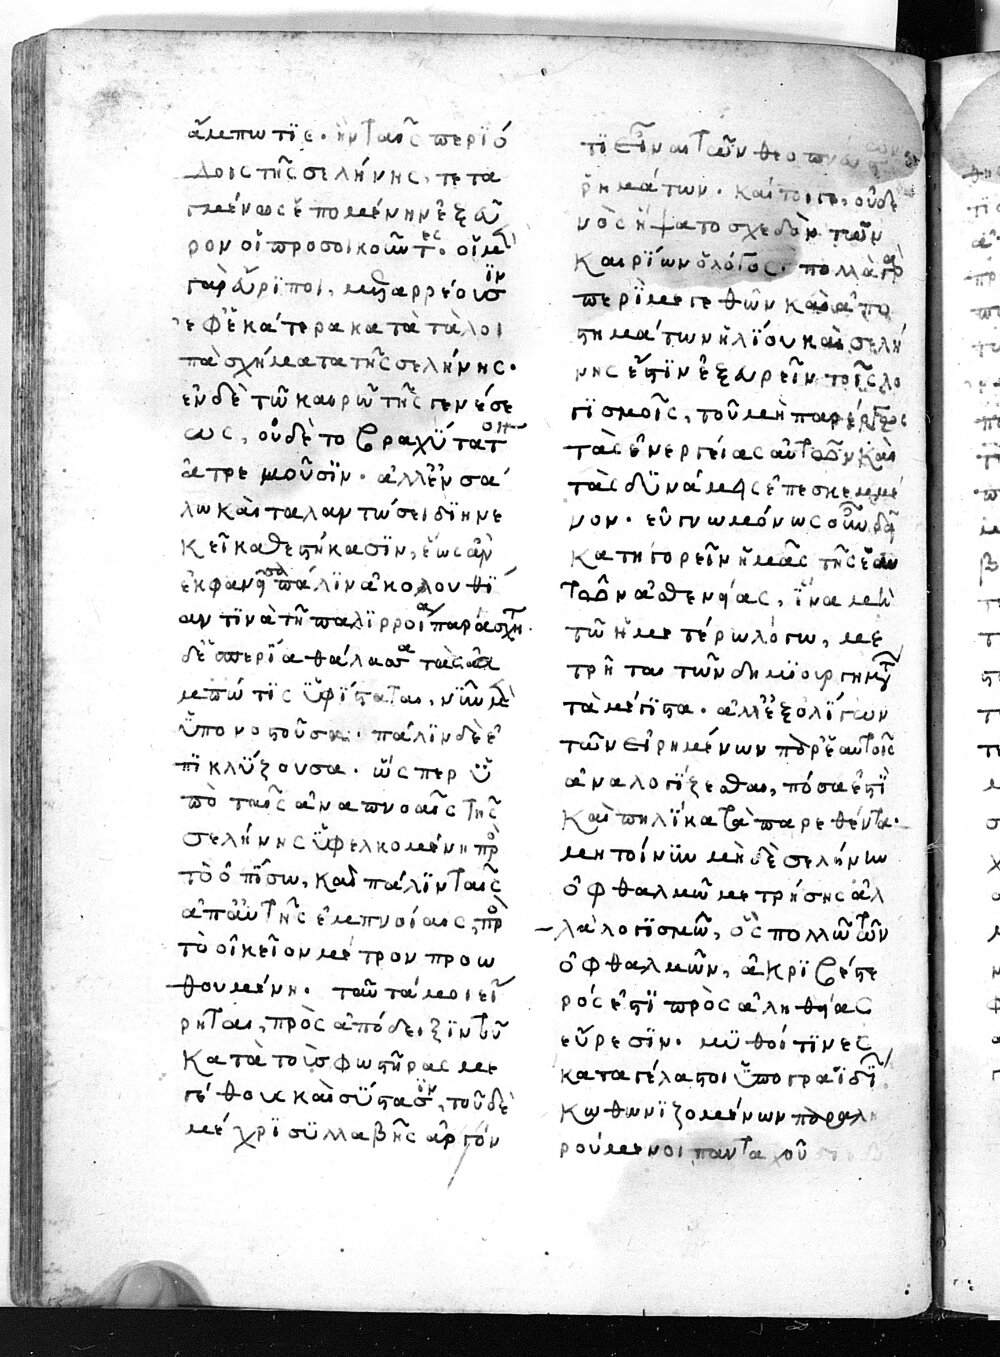 ἄμπωτϊς· ἣν ταῖς περϊό
δοις τῆς σελήνης, τετα
γμένως ἑπομένην ἐξεῦ
ρον οἱ προσοικοῦντες· οἱ μὲν
γὰρ εὔρϊποι, μεταρρέουσϊν
ἐφ' ἑκάτερα κατὰ τὰ λοι
πὰ σχήματα τῆς σελήνης·
ἐν δὲ τῶ καιρῶ τῆς γενέσε
ως, οὐδὲ το βραχϋτατον
ἀτρεμοῦσϊν· ἀλλ' ἐν σά
λω καὶ ταλαντώσει δϊηνε
κεῖ καθεστήκασϊν, ἕως ἂν
ἐκφανεῖσα πάλϊν ἀκολουθΐ
αν τϊνὰ τῆ παλϊρροία παράσχη·
δὲ ἑσπερία θάλασσα τὰς ἀ
μπώτϊς ὑφΐσταται, νῦν μὲν
ὑπονοστοῦσα· πάλϊν δὲ ἐ
πϊκλύζουσα· ὥσπερ ὑ
πὸ ταῖς ἀναπνοαῖς τῆς
σελήνης ὑφελκομένη πρὸς
τὸ ὀπΐσω, καὶ πάλϊν ταῖς
ἀπ' αὐτῆς ἐμπνοίαις, πρὸς
τὸ οἰκεῖον μέτρον προω
θουμένη· ταῦτά μοι εἴ
ρηται, πρὸς ἀπόδειξϊν τοῦ
κατὰ τοὺς φωστῆρας με
γέθους καὶ σύστασϊν, τοῦ δὲ
μέχρϊ συλλαβῆς ἀργόν
τϊ εἶναι τῶν θεοπνεύστων
ῥημάτων· καίτοιγε, οὐδε
νὸς ἥψατο σχεδὸν τῶν
καιρΐων ὁ λόγος· πολλὰ γὰρ
περὶ μεγεθῶν καὶ ἀπο
στημάτων ἡλΐου καὶ σελή
νης ἔστϊν ἐξευρεῖν τοῖς λο
γϊσμοῖς, τοῦ μὴ παρέργως
τὰς ἐνεργείας αὐτῶν καὶ
τὰς δυνάμεις ἐπεσκεμμέ
νον· εὐγνωμόνως οὖν δεῖ
κατηγορεῖν ἡμᾶς τῆς ἑαυ
τῶν ἀσθενείας, ἵνα μὴ
τῶ ἡμετέρω λόγω, με
τρῆται τῶν δημϊουργημάτων
τὰ μέγϊστα· ἀλλ' ἐξ ὀλΐγων
τῶν εἰρημένων παρ' ἑαυτοῖς
ἀναλογΐζεσθαι, πόσα ἐστὶ
καὶ πηλΐκα τὰ παρεθέντα·
μὴ τοίνυν μὴ δὲ σελήνην
ὀφθαλμῶ μετρήσης ἀλ
λὰ λογϊσμῶ, ὃς πολλῶ τῶν
ὀφθαλμῶν, ἀκρϊβέστε
ρός ἐστϊ πρὸς ἀληθείας
εὕρεσϊν· μῦθοί τϊνες
καταγέλαστοι ὑπὸ γραϊδΐων
κωθωνϊζομένων παραλη
ρούμενοι πανταχοῦ